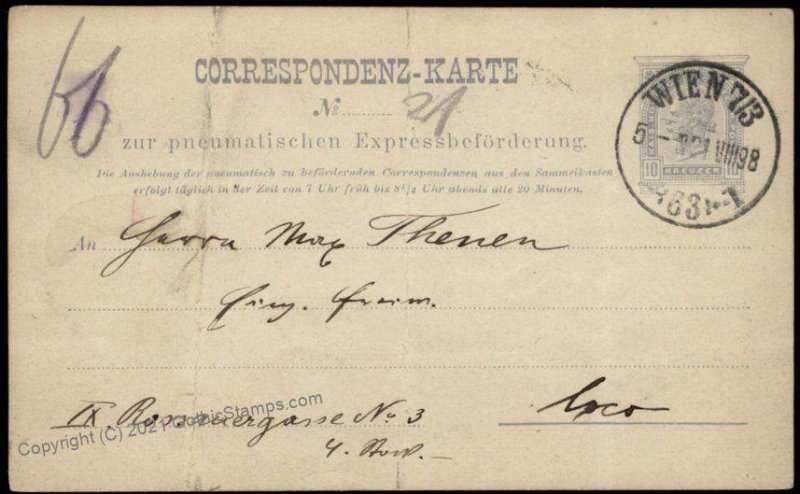 66
CORRESPONDENZ-KARTE
No 21
zur pneumatischen Expressbeförderung.
Die Aushebung der pneumatisch zu befördernden Correspondenzen aus den Sammelkasten
erfolgt täglich in der Zeit von 7 Uhr früh bis 8½ Uhr abends alle 20 Minuten.
WIEN 7/3
5
98
63
10 KREUZER 10
An Herrn Max Thenen
Einj. freiw.
loco
IX. gasse No 3
4. Stock.
Copyright (C) 2021 GothicStamps.com